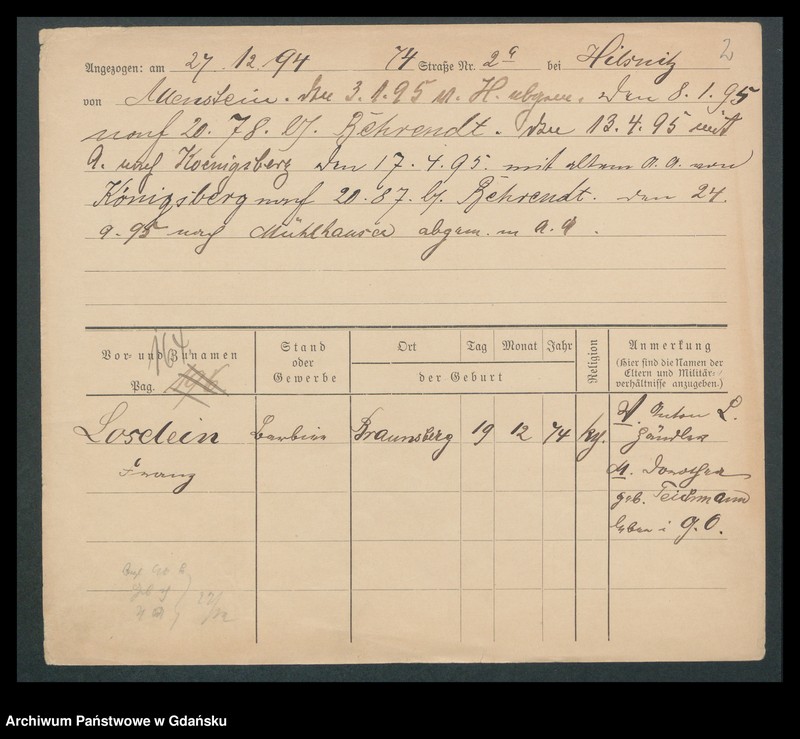 2
Angezogen: am 27.12.94 74 Straße Nr. 2a bei Hilsnitz
von Allenstein. den 3.1.95 v. H. abgem. den 8.1.95
nach 20. 78. bei Behrendt. den 13.4.95 mit
A. nach Koenigsberg den 17.4.95. mit altem A. A. von
Königsberg nach 20.87. bei Behrendt. den 24.
9.95 nach Mühlhausen abgem. m A. A.
Vor- und Zunamen
Pag. 196
164
Stand
oder
Gewerbe
Ort Tag Monat Jahr
der Geburt
Religion
Anmerkung
(Hier sind die Namen der
Eltern und Militär-
verhältnisse anzugeben.)
Losdein Barbier Braunsberg 19 12 74 kth.
Franz
V. Anton L.
Händler
M. Dorothea
geb. Teichmann
leben i g. O.
Archiwum Państwowe w Gdańsku